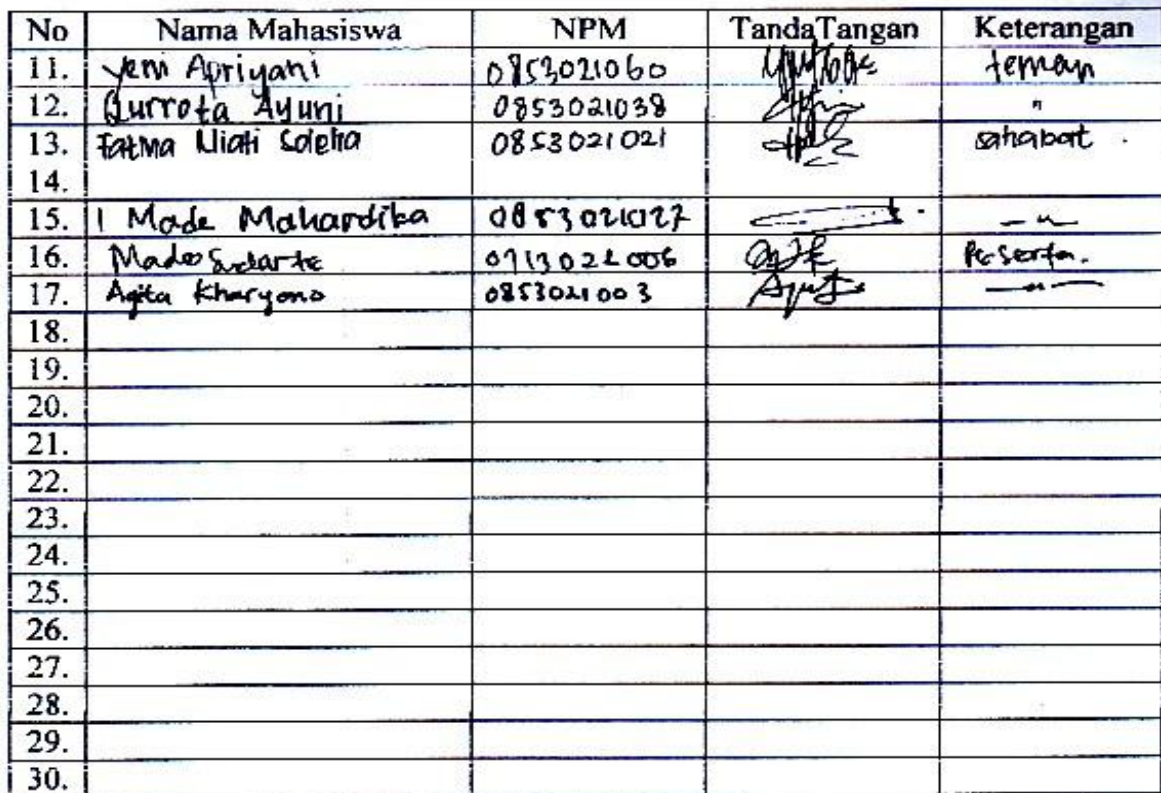 No Nama Mahasiswa NPM TandaTangan Keterangan
11. Yeni Apriyani 0853021060 teman
12. Qurrota Ayuni 0853021038 "
13. Fatma 0853021021 sahabat .
14.
15. I Made Mahardika 0853021027 — " —
16. Made Sudarte 0713021006 Peserta.
17. Agita Kharyono 0853021003 — " —
18.
19.
20.
21.
22.
23.
24.
25.
26.
27.
28.
29.
30.